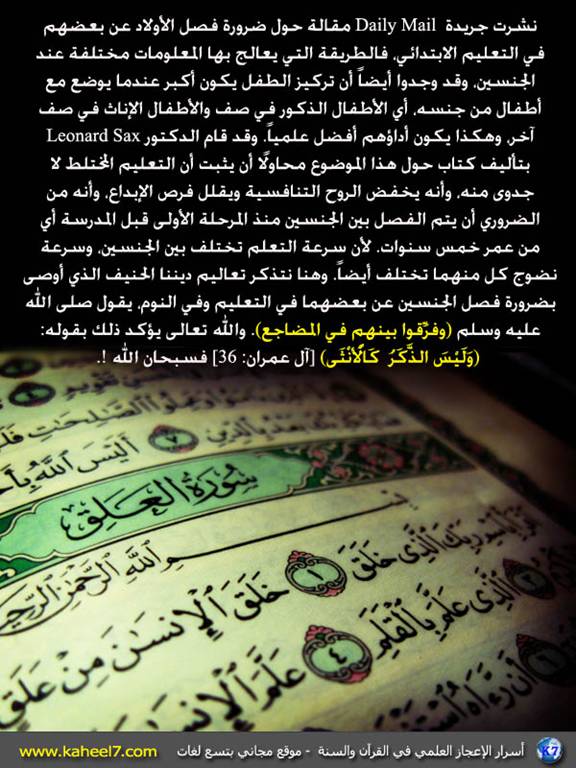 نشرت جريدة Daily Mail مقالة حول ضرورة فصل الأولاد عن بعضهم
في التعليم الابتدائي، فالطريقة التي يعالج بها المعلومات مختلفة عند
الجنسين، وقد وجدوا أيضاً أن تركيز الطفل يكون أكبر عندما يوضع مع
أطفال من جنسه، أي الأطفال الذكور في صف والأطفال الإناث في صف
آخر، وهكذا يكون أداؤهم أفضل علمياً، وقد قام الدكتور Leonard Sax
بتأليف كتاب حول هذا الموضوع محاولًا أن يثبت أن التعليم المختلط لا
جدوى منه، وأنه يخفض الروح التنافسية ويقلل فرص الإبداع، وأنه من
الضروري أن يتم الفصل بين الجنسين منذ المرحلة الأولى قبل المدرسة أي
من عمر خمس سنوات. لأن سرعة التعلم تختلف بين الجنسين، وسرعة
نضوج كل منهما تختلف أيضاً. وهنا نتذكر تعاليم ديننا الحنيف الذي أوصى
بضرورة فصل الجنسين عن بعضهما في التعليم وفي النوم، يقول صلى الله
عليه وسلم (وفرِّقوا بينهم في المضاجع). والله تعالى يؤكد ذلك بقوله:
(وَلَيْسَ الذَّكَرُ كَالْأُنْثَى) [آل عمران: 36] فسبحان الله !.
أَلَيْسَ اللَّهُ
سُورَةُ الْعَلَقِ
اللَّهِ الرَّحْمَٰنِ الرَّحِيمِ
بِاسْمِ رَبِّكَ الَّذِي خَلَقَ ١ خَلَقَ الْإِنسَانَ مِنْ عَلَقٍ
الَّذِي عَلَّمَ بِالْقَلَمِ ٤ عَلَّمَ الْإِنسَانَ
أَن رَّءَاهُ
أسرار الإعجاز العلمي في القرآن والسنة - موقع مجاني بتسع لغات www.kaheel7.com
K7